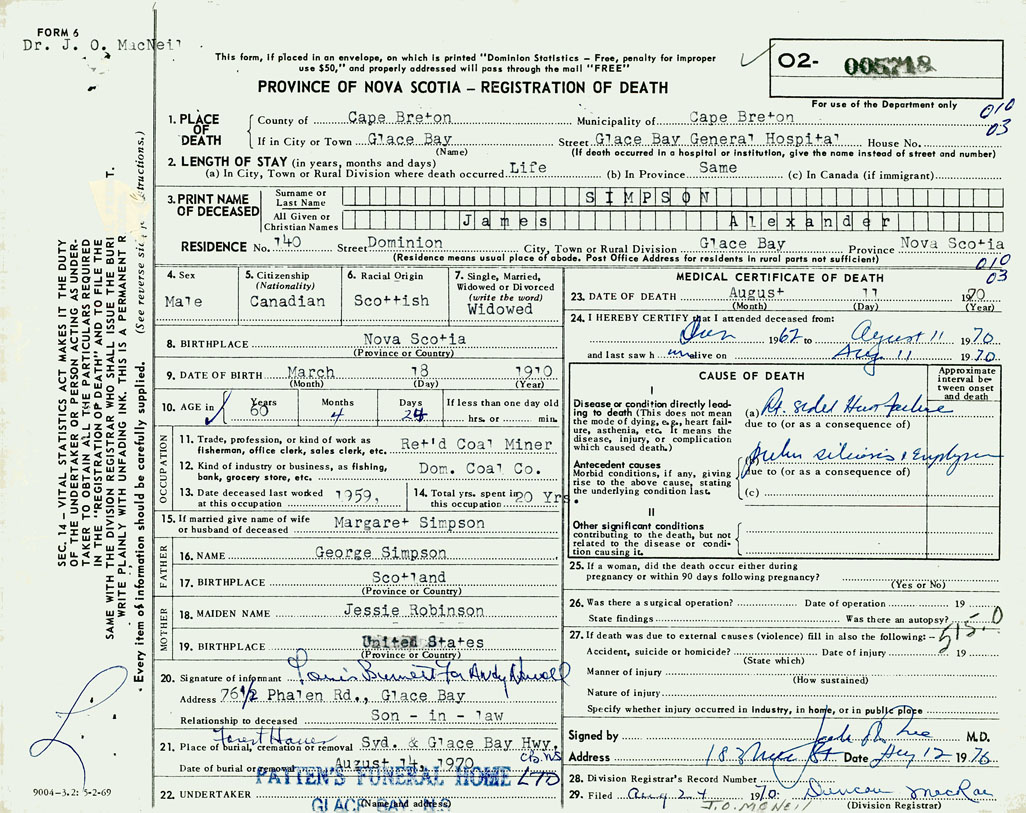 FORM 6
Dr. J. O. MacNeil
This form, if placed in an envelope, on which is printed "Dominion Statistics – Free, penalty for improper
use $50," and properly addressed will pass through the mail "FREE"
02- 005718
For use of the Department only
PROVINCE OF NOVA SCOTIA – REGISTRATION OF DEATH
010
03
1. PLACE OF DEATH
County of Cape Breton Municipality of Cape Breton
If in City or Town Glace Bay Street Glace Bay General Hospital House No.
(Name) (If death occurred in a hospital or institution, give the name instead of street and number)
2. LENGTH OF STAY (in years, months and days)
(a) In City, Town or Rural Division where death occurred Life (b) In Province Same (c) In Canada (if immigrant)
3. PRINT NAME OF DECEASED
Surname or Last Name SIMPSON
All Given or Christian Names James Alexander
RESIDENCE No. 140 Street Dominion City, Town or Rural Division Glace Bay Province Nova Scotia
(Residence means usual place of abode. Post Office Address for residents in rural parts not sufficient)
010
03
4. Sex
Male
5. Citizenship
(Nationality)
Canadian
6. Racial Origin
Scottish
7. Single, Married,
Widowed or Divorced
(write the word)
Widowed
8. BIRTHPLACE Nova Scotia
(Province or Country)
9. DATE OF BIRTH March 18 1910
(Month) (Day) (Year)
10. AGE in Years 60 Months 4 Days 24 If less than one day old
hrs. or min.
OCCUPATION
11. Trade, profession, or kind of work as
fisherman, office clerk, sales clerk, etc. Ret'd Coal Miner
12. Kind of industry or business, as fishing,
bank, grocery store, etc. Dom. Coal Co.
13. Date deceased last worked
at this occupation 1959,
14. Total yrs. spent in
this occupation 20 Yrs.
15. If married give name of wife
or husband of deceased Margaret Simpson
FATHER
16. NAME George Simpson
17. BIRTHPLACE Scotland
(Province or Country)
MOTHER
18. MAIDEN NAME Jessie Robinson
19. BIRTHPLACE United States
(Province or Country)
20. Signature of informant Burnett For Andy
Address 76 1/2 Phalen Rd., Glace Bay
Relationship to deceased Son - in - law
Forest Haven
21. Place of burial, cremation or removal Syd. & Glace Bay Hwy.
C.B. N.S
Date of burial or removal August 14, 1970
PATTEN'S FUNERAL HOME LTD
22. UNDERTAKER
(Name and address)
GLACE BAY, N.S.
MEDICAL CERTIFICATE OF DEATH
23. DATE OF DEATH August 11 1970
(Month) (Day) (Year)
24. I HEREBY CERTIFY that I attended deceased from:
1962 to August 11 1970
and last saw him alive on Aug 11 1970
CAUSE OF DEATH
Approximate
interval be-
tween onset
and death
I
Disease or condition directly lead-
ing to death (This does not mean
the mode of dying, e.g., heart fail-
ure, asthenia, etc. It means the
disease, injury, or complication
which caused death.)
(a) Rt. sided Heart failure
due to (or as a consequence of)
Antecedent causes
Morbid conditions, if any, giving
rise to the above cause, stating
the underlying condition last.
silicosis
due to (or as a consequence of)
(c)
II
Other significant conditions
contributing to the death, but not
related to the disease or condi-
tion causing it.
25. If a woman, did the death occur either during
pregnancy or within 90 days following pregnancy?
(Yes or No)
26. Was there a surgical operation? Date of operation 19
State findings Was there an autopsy?
515.0
27. If death was due to external causes (violence) fill in also the following:–
Accident, suicide or homicide? Date of injury 19
(State which)
Manner of injury
(How sustained)
Nature of injury
Specify whether injury occurred in industry, in home, or in public place
Signed by M.D.
Address St Date Aug 12 1970
28. Division Registrar's Record Number
29. Filed Aug 24 1970: Duncan MacRae
J.O. McNEIL (Division Registrar)
SEC. 14 – VITAL STATISTICS ACT MAKES IT THE DUTY
OF THE UNDERTAKER OR PERSON ACTING AS UNDER-
TAKER TO OBTAIN ALL THE PARTICULARS REQUIRED
IN THE "REGISTRATION OF DEATH" AND TO FILE THE
SAME WITH THE DIVISION REGISTRAR WHO SHALL ISSUE THE BURI T.
WRITE PLAINLY WITH UNFADING INK. THIS IS A PERMANENT R
Every item of information should be carefully supplied. (See reverse si tructions.)
9004-3.2: 5-2-69